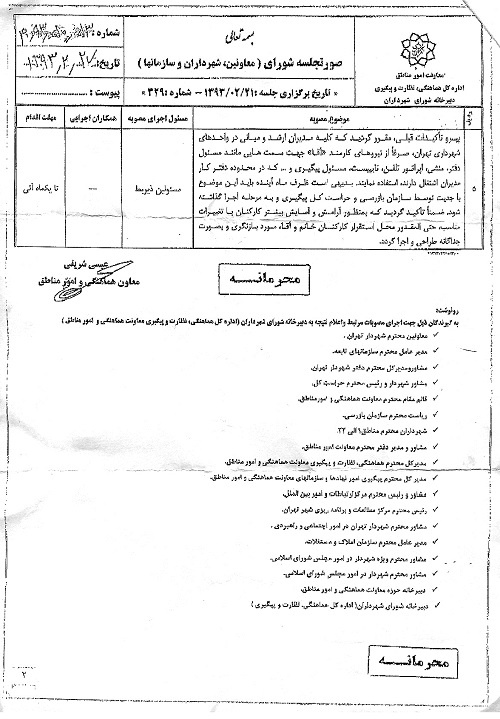 بسمه تعالی
شماره:
تاریخ: ۱۳۹۳،۲،۲۷
پیوست:
معاونت امور مناطق
اداره کل هماهنگی، نظارت و پیگیری
دبیرخانه شورای شهرداران
صورتجلسه شورای ( معاونین، شهرداران و سازمانها )
« تاریخ برگزاری جلسه : ۱۳۹۳/۰۲/۲۱ – شماره : ۳۲۹ »
ردیف موضوع مصوبه مسئول اجرای مصوبه همکاران اجرایی مهلت اقدام
پیرو تأکیدات قبلی، مقرر گردید که کلیه مدیران ارشد و میانی در واحدهای
شهرداری تهران، صرفاً از نیروهای کارمند «آقا» جهت سمت هایی مانند مسئول
دفتر، منشی، اپراتور تلفن، تایپیست، مسئول پیگیری و ... که در محدوده دفتر کار
مدیران اشتغال دارند، استفاده نمایند. بدیهی است ظرف ماه آینده باید این موضوع
۵ با جدیت توسط سازمان بازرسی و حراست کل پیگیری و به مرحله اجرا گذاشته مسئولین ذیربط --- تا یکماه آتی
شود. ضمناً تأکید گردید که بمنظور آرامش و آسایش بیشتر کارکنان با تغییرات
مناسب، حتی المقدور محل استقرار کارکنان خانم و آقا، مورد بازنگری و بصورت
جداگانه طراحی و اجرا گردد.
عیسی شریفی
معاون هماهنگی و امور مناطق
محرمانه
رونوشت:
به گیرندگان ذیل جهت اجرای مصوبات مرتبط و اعلام نتیجه به دبیرخانه شورای شهرداران (اداره کل هماهنگی، نظارت و پیگیری معاونت هماهنگی و امور مناطق )
✓ معاونین محترم شهردار تهران.
✓ مدیر عامل محترم سازمانهای تابعه.
✓ مشاور و مدیرکل محترم دفتر شهردار تهران.
✓ مشاور شهردار و رئیس محترم حراست کل.
✓ قائم مقام محترم معاونت هماهنگی و امور مناطق.
✓ ریاست محترم سازمان بازرسی.
✓ شهرداران محترم مناطق ۱ الی ۲۲.
✓ مشاور و مدیر دفتر محترم معاونت امور مناطق.
✓ مدیرکل محترم هماهنگی، نظارت و پیگیری معاونت هماهنگی و امور مناطق.
✓ مدیر کل محترم پیگیری امور نهادها و سازمانهای معاونت هماهنگی و امور مناطق.
✓ مشاور و رئیس محترم مرکز ارتباطات و امور بین الملل.
✓ رئیس محترم مرکز مطالعات و برنامه ریزی شهر تهران.
✓ مشاور محترم شهردار تهران در امور اجتماعی و راهبردی .
✓ مدیر عامل محترم سازمان املاک و مستغلات.
✓ مشاور محترم ویژه شهردار در امور مجلس شورای اسلامی.
✓ مشاور محترم شهردار در امور مجلس شورای اسلامی.
✓ دبیرخانه حوزه معاونت هماهنگی و امور مناطق.
✓ دبیرخانه شورای شهرداران( اداره کل هماهنگی، نظارت و پیگیری )
محرمانه
۲